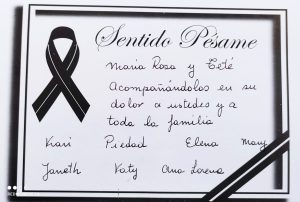 Sentido Pésame
Maria Rosa y Teté
Acompañándolos en su
dolor a ustedes y a
toda la familia
Kari Piedad Elena Mary
Janeth Katy Ana Lorena